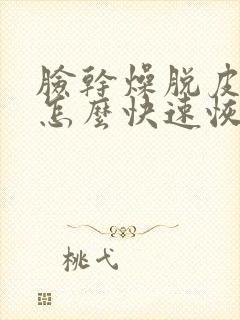 臉幹燥脫皮
怎麼快速恢
桃弋